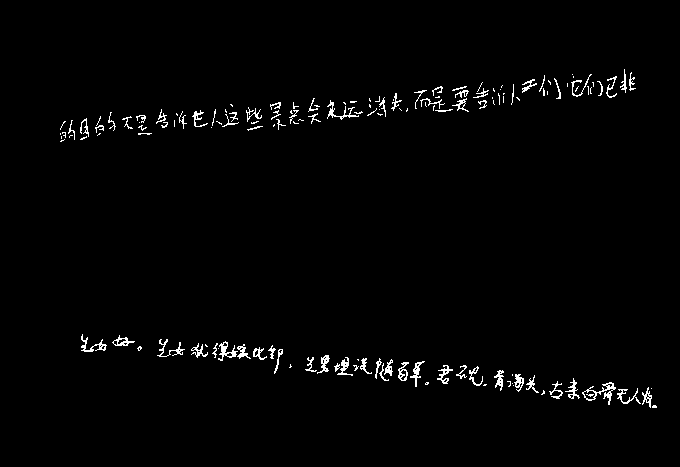 的目的不是告诉世人这些景点会永远消失,而是要告诉人们它们已非
生女好。生女犹得嫁比邻,生男埋没随百草。君不见,青海头,古来白骨无人收。